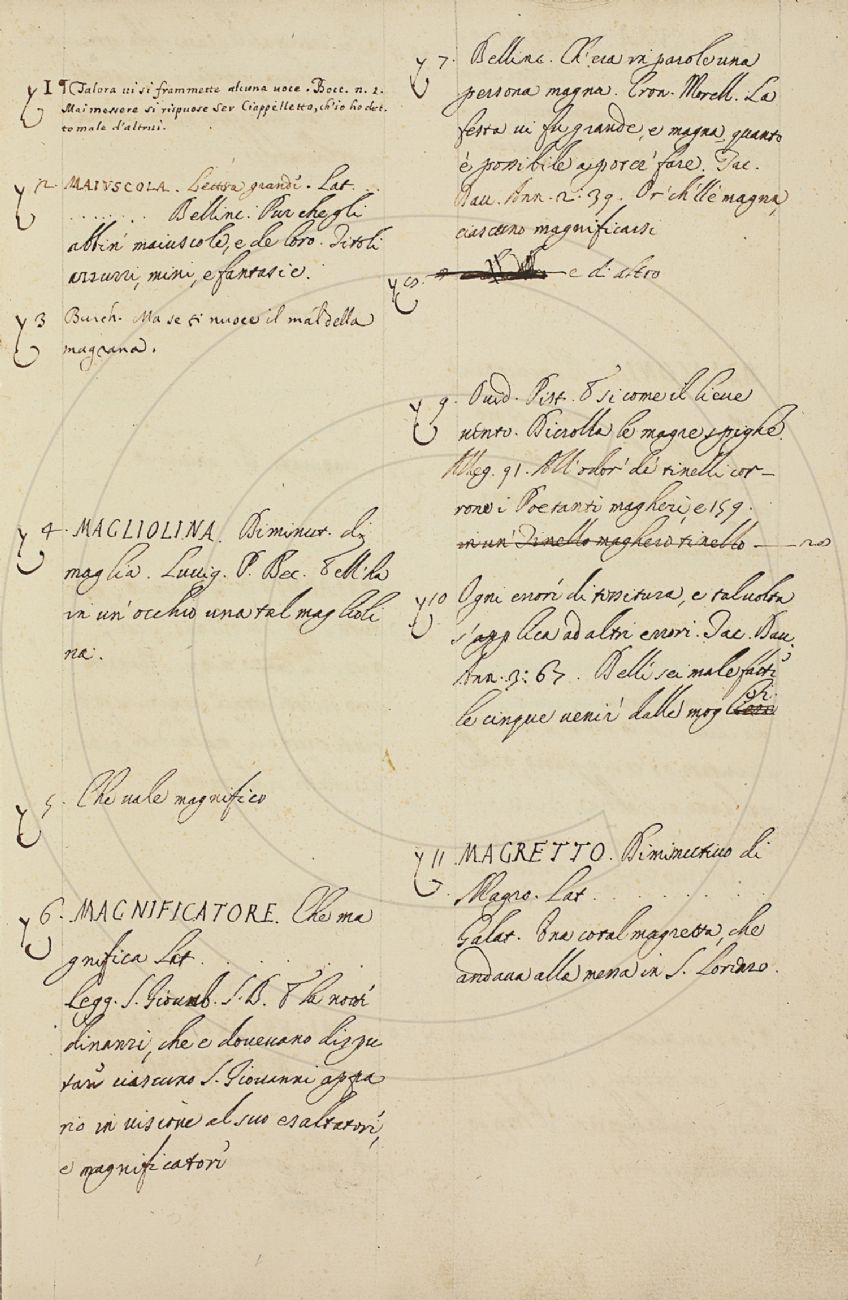 1 ¶ Talora vi si frammette alcuna voce. Bocc. n. 1.
Mai messere si rispuose Ser Ciappelletto, ch'io ho det.
to male d'altrui.
2. MAIVSCOLA. Lettera grande. Lat. . .
. . . . . . . . Bellinc. Pur che gli
abbin' maiuscole, e de loro. Titoli
azzurri, mini, e fantasie.
3 Burch. Ma se ti nuoce il mal della
magrana.
4. MAGLIOLINA. Diminut. di
maglia. Luvig. P. Bec. Ell'ha
in un' occhio una tal maglioli
na.
5. Che vale magnifico
6. MAGNIFICATORE. Che ma
gnifica Lat. . . . . . .
Legg. S. Giovamb. S. B. E la notte
dinanzi, che e dovevano dispu
tare ciascuno S. Giovanni appa
rio in visione al suo esaltatore,
e magnificatore
7. Bellinc. Ch'era in parole una
persona magna. Cron. Morell. La
festa vi fu grande, e magna, quanto
è possibile a poter fare. Tac.
Dav. Ann. 2. 39. Or ch'ell'è magna,
ciascuno magnificarsi
8. e di altro
9. Ovid. Pist. E si come il lieve
vento. Dicrolla le magre spighe.
Alleg. 91. All'odor de tinelli cor-
rono i Poetanti magheri, e 159.
in un' Tinello maghero tinello — no
10 Ogni error di tessitura, e talvolta
s'applica ad altri errori. Tac. Dav.
Ann. 3: 67. Delli sei malefatti
le cinque venir dalle mogli
11 MAGRETTO. Diminutivo di
Magro. Lat. . . . . . . .
Galat. Una cotal magretta, che
andava alla messa in S. Lorenzo.